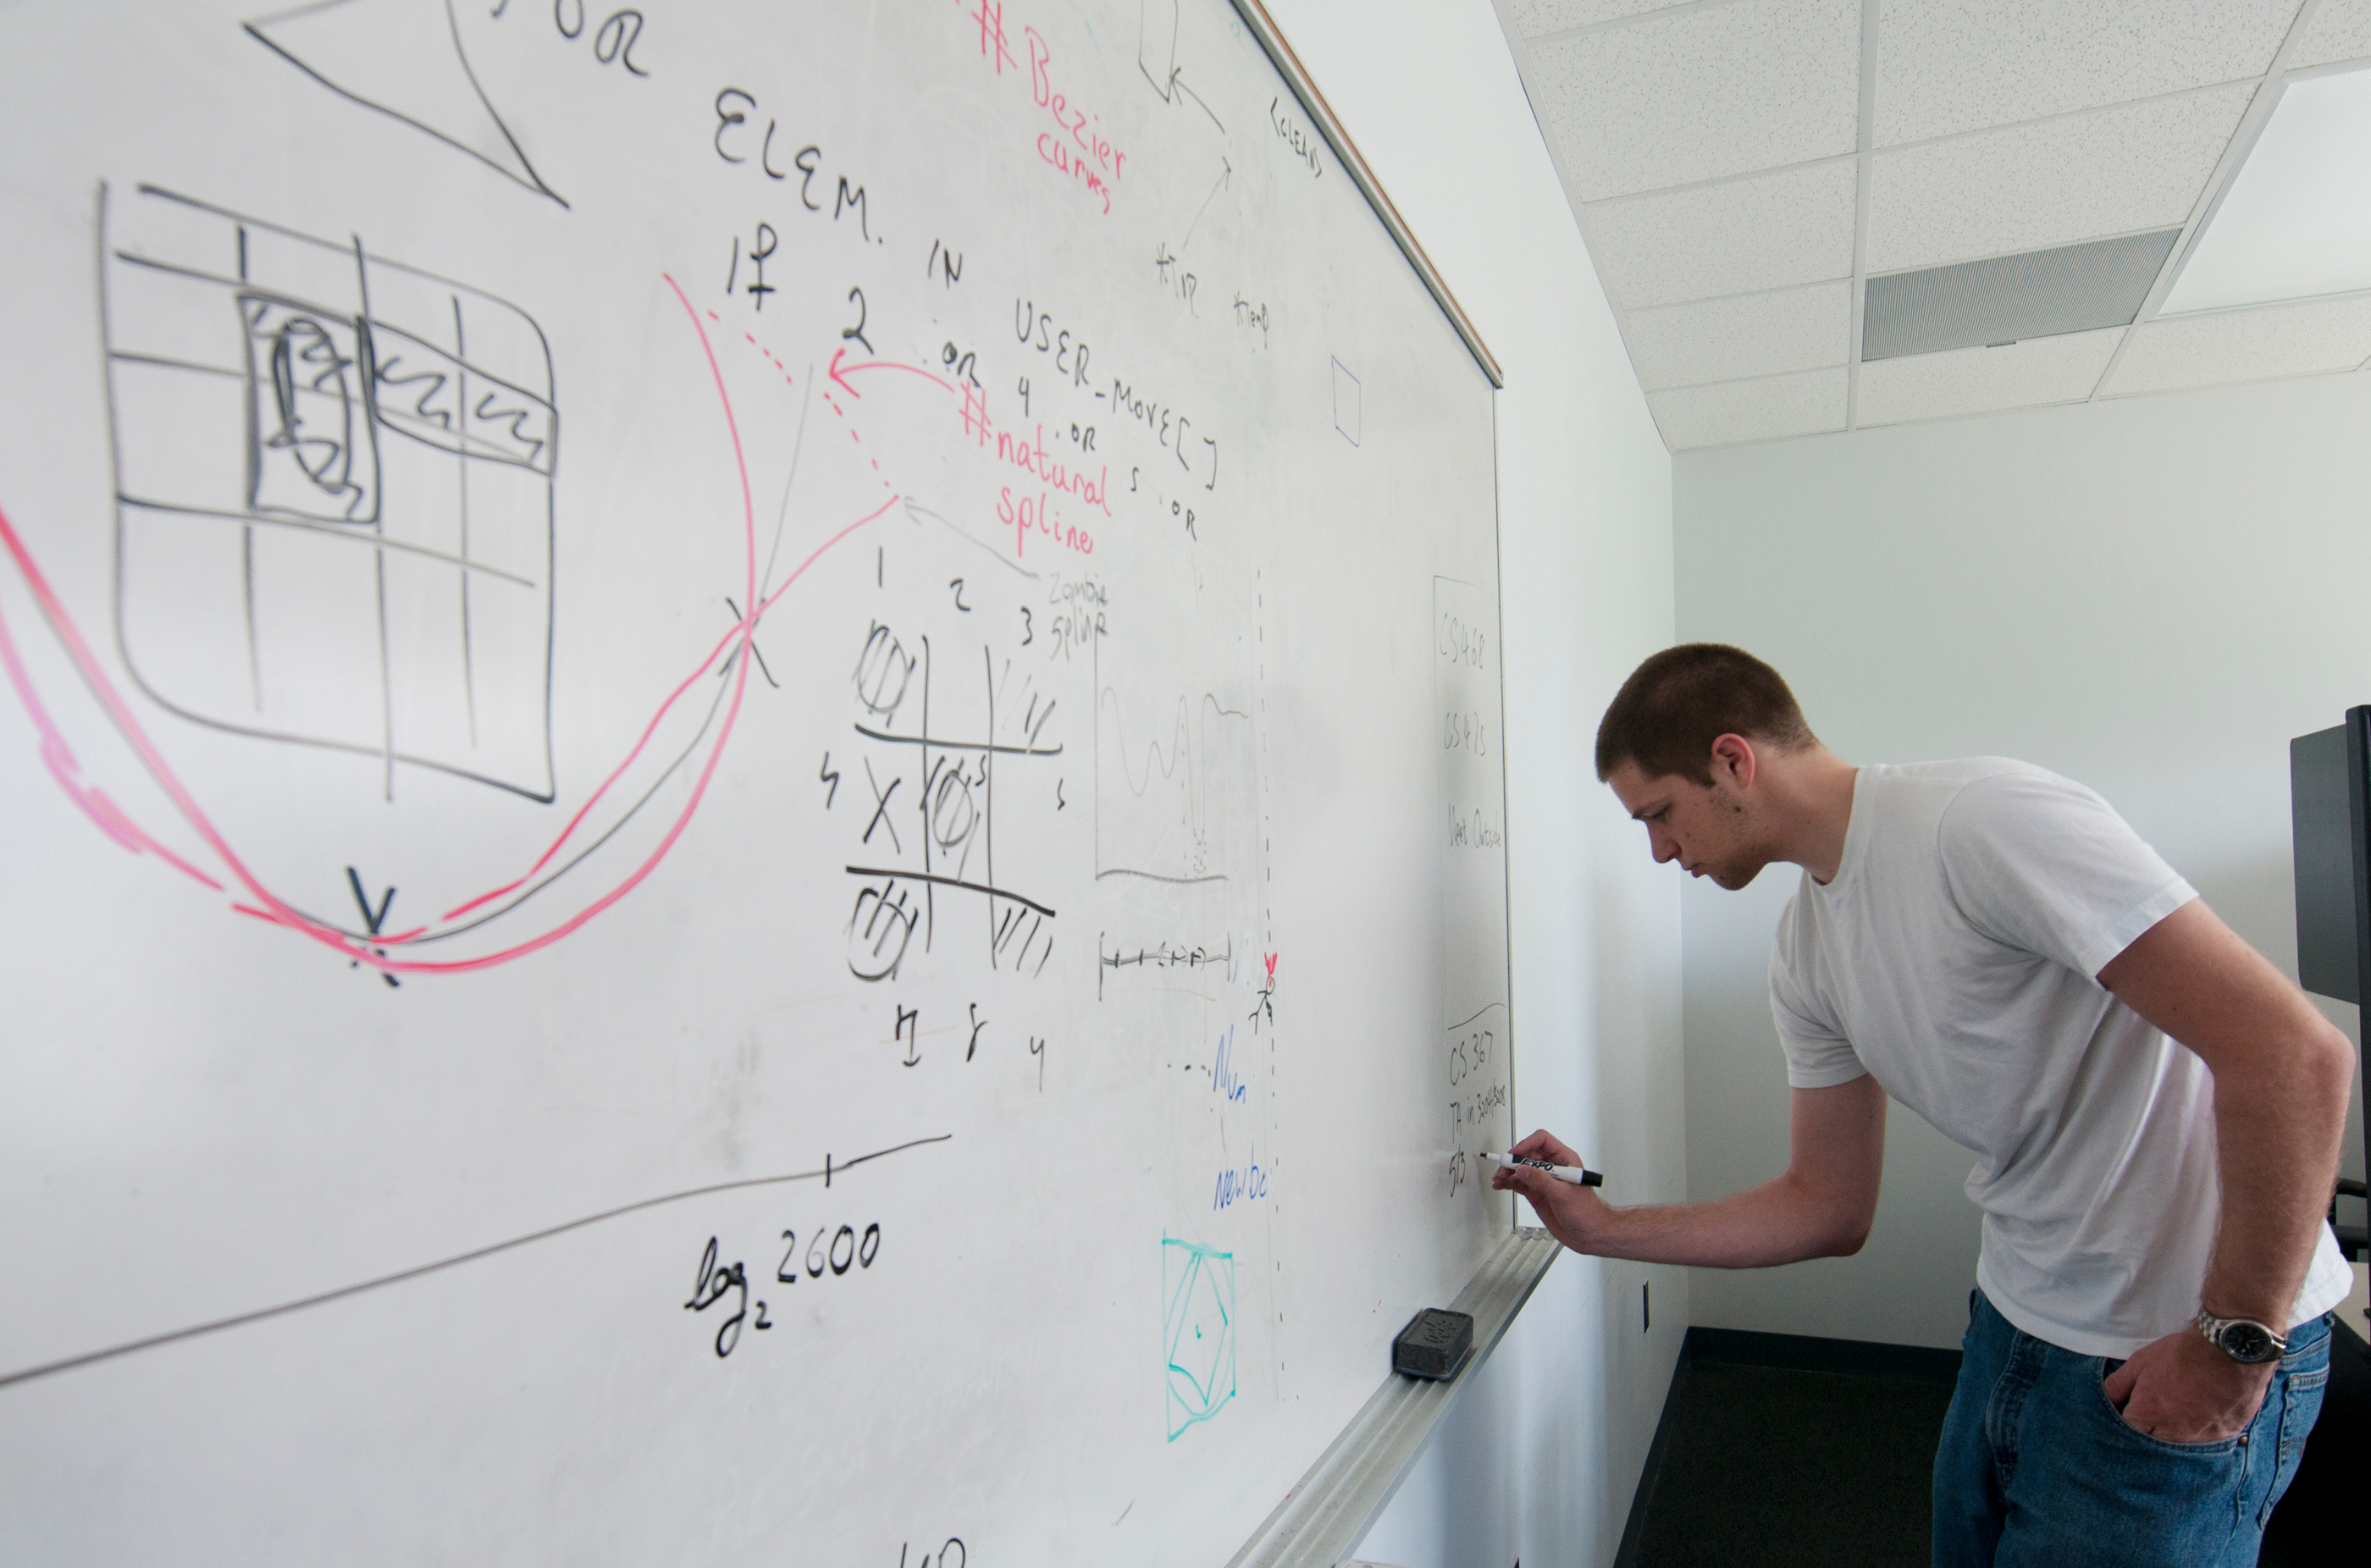 FOR
ELEM. IN USER_MOVE[]
If 2 .OR 4 .OR 5 .OR
# Bezier
curves
<CLEAN>
*TMP *Temp
# natural
spline
Zombie
spline
1 2 3
4 X 5
8
log₂ 2600
Num
New
CS 468
CS 475
Vent Outside
CS 367
TA in
5/3
EXPO